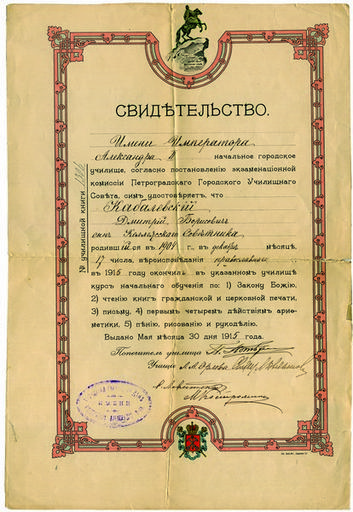 СВИДѢТЕЛЬСТВО.
Имени Императора
Александра II начальное городское
училище, согласно постановленію экзаменаціонной
комиссіи Петроградскаго Городского Училищнаго
Совѣта, симъ удостовѣряетъ, что
Кабалевскій
Дмитрій Борисовичъ
сынъ Коллежскаго Совѣтника
родившійся въ 1904 г. въ декабрѣ мѣсяцѣ,
17 числа, вѣроисповѣданія православнаго
въ 1915 году окончилъ въ указанномъ училищѣ
курсъ начальнаго обученія по: 1) Закону Божію,
2) чтенію книгъ гражданской и церковной печати,
3) письму, 4) первымъ четыремъ дѣйствіямъ ариѳ-
метики, 5) пѣнію, рисованію и рукодѣлію.
Выдано Мая мѣсяца 30 дня 1915 года.
Попечитель училища
Учащіе
№ училищной книги